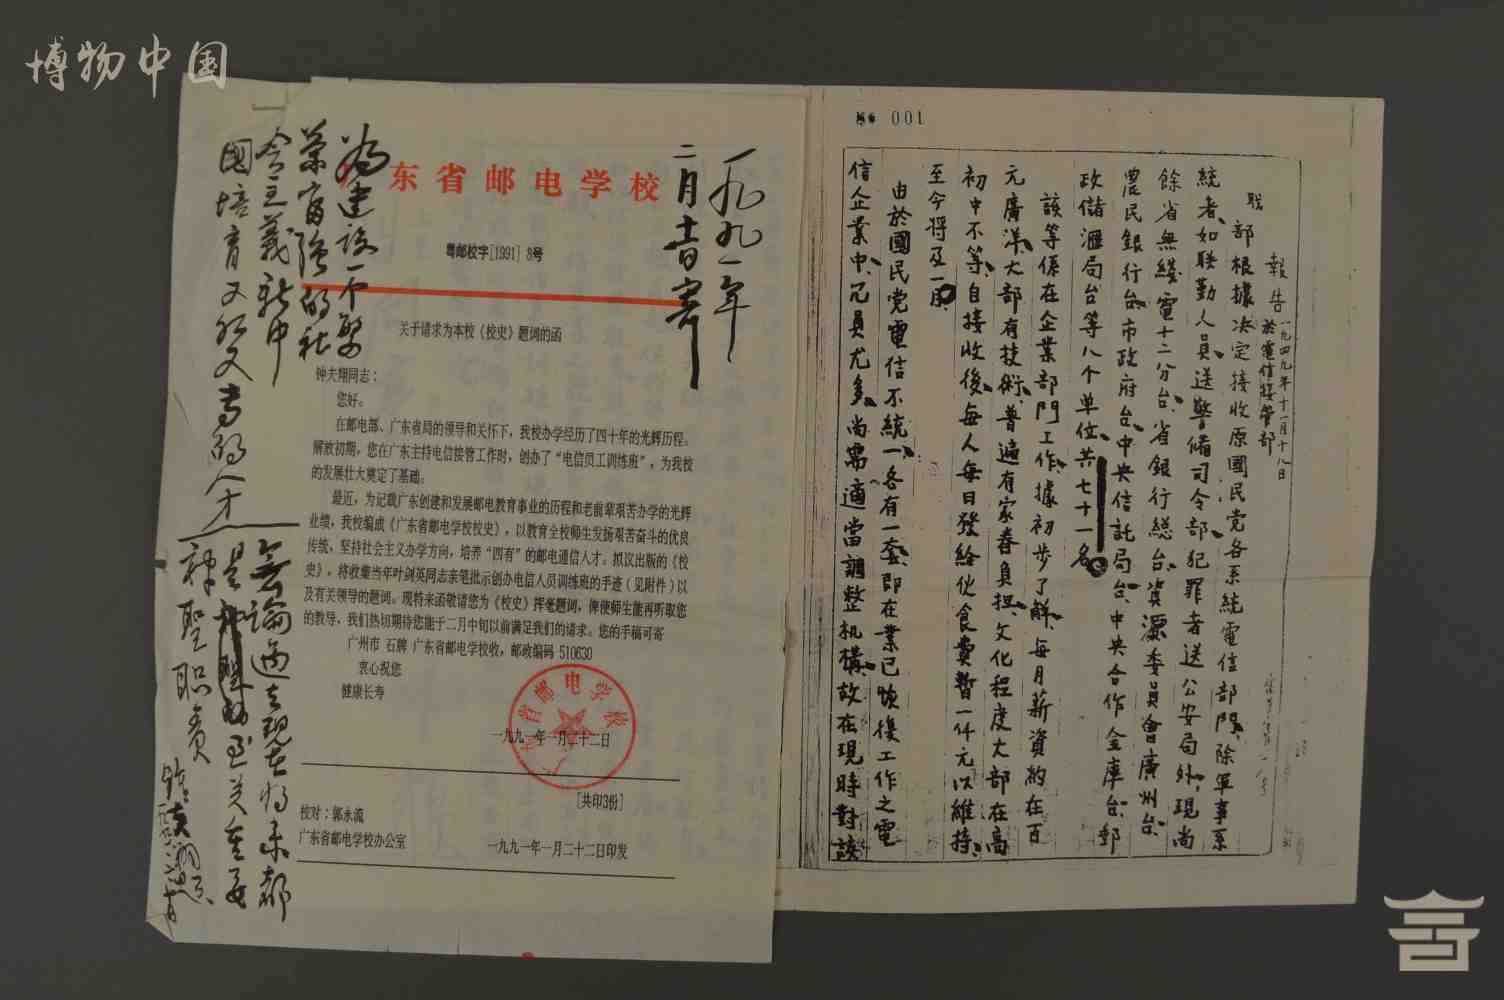 博物中国
广东省邮电学校
粤邮校字[1991] 8号
关于请求为本校《校史》题词的函
钟夫翔同志：
您好。
在邮电部、广东省局的领导和关怀下，我校办学经历了四十年的光辉历程。
解放初期，您在广东主持电信接管工作时，创办了“电信员工训练班”，为我校
的发展壮大奠定了基础。
最近，为记载广东创建和发展邮电教育事业的历程和老前辈艰苦办学的光辉
业绩，我校编成《广东省邮电学校校史》，以教育全校师生发扬艰苦奋斗的优良
传统，坚持社会主义办学方向，培养“四有”的邮电通信人才。拟议出版的《校
史》，将收集当年叶剑英同志亲笔批示创办电信人员训练班的手迹（见附件）以
及有关领导的题词。现特来函敬请您为《校史》挥毫题词，俾使师生能再听取您
的教导，我们热切期待您能于二月中旬以前满足我们的请求。您的手稿可寄
广州市 石牌 广东省邮电学校收，邮政编码 510630
衷心祝您
健康长寿
一九九一年一月二十二日
[共印3份]
校对：郭永流
广东省邮电学校办公室
一九九一年一月二十二日印发
一九九一年
二月十一日寄
为建设一个繁
荣富强的社
会主义新中
国培育又红又
专的人才
无论过去现在将来都
神聖职责
001
報告 一九四九年十一月十八日
於電信接管部
部根據决定接收原國民党各系統電信部門，除軍事系
統者，如联勤人員送警備司令部，犯罪者送公安局外，現尚
餘省無綫電十二分台、省銀行總台、資源委員會廣州台、
農民銀行台、市政府台、中央信託局台、中央合作金庫台、郵
政儲滙局台等八个單位，共七十一名。
該等係在企業部門工作，據初步了解，每月薪資約在百
元廣洋，大部有技術，普遍有家眷負担，文化程度大部在高
初中不等，自接收後，每人每日發給伙食費暫一仟元以維持，
至今将及一月。
由於國民党電信不統一，各有一套，即在業已恢復工作之電
信企業中，冗員尤多，尚需適當調整机構，故在現時對該